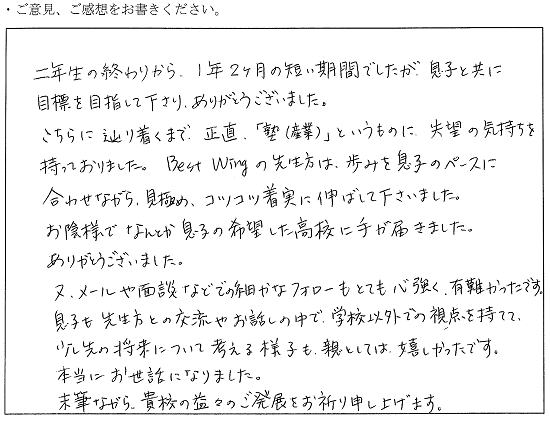 ・ご意見、ご感想をお書きください。
二年生の終わりから、1年2ヶ月の短い期間でしたが、息子と共に
目標を目指して下さり、ありがとうございました。
こちらに辿り着くまで、正直、「塾(産業)」というものに、失望の気持ちを
持っておりました。Best Wingの先生方は、歩みを息子のペースに
合わせながら、見極め、コツコツ着実に伸ばして下さいました。
お陰様でなんとか息子の希望した高校に手が届きました。
ありがとうございました。
又、メールや面談などでの細かなフォローもとても心強く、有難かったです。
息子も先生方との交流やお話しの中で、学校以外での視点を持てて、
少し先の将来について考える様子も、親としては嬉しかったです。
本当にお世話になりました。
末筆ながら、貴校の益々のご発展をお祈り申し上げます。